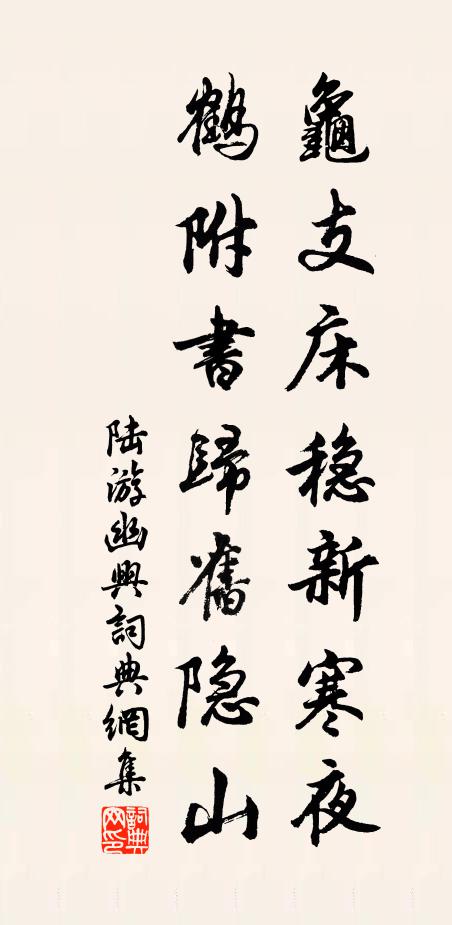 龜支床穩新寒夜
鶴附書歸舊隐山
陆游幽興詞典網集
詞典網印